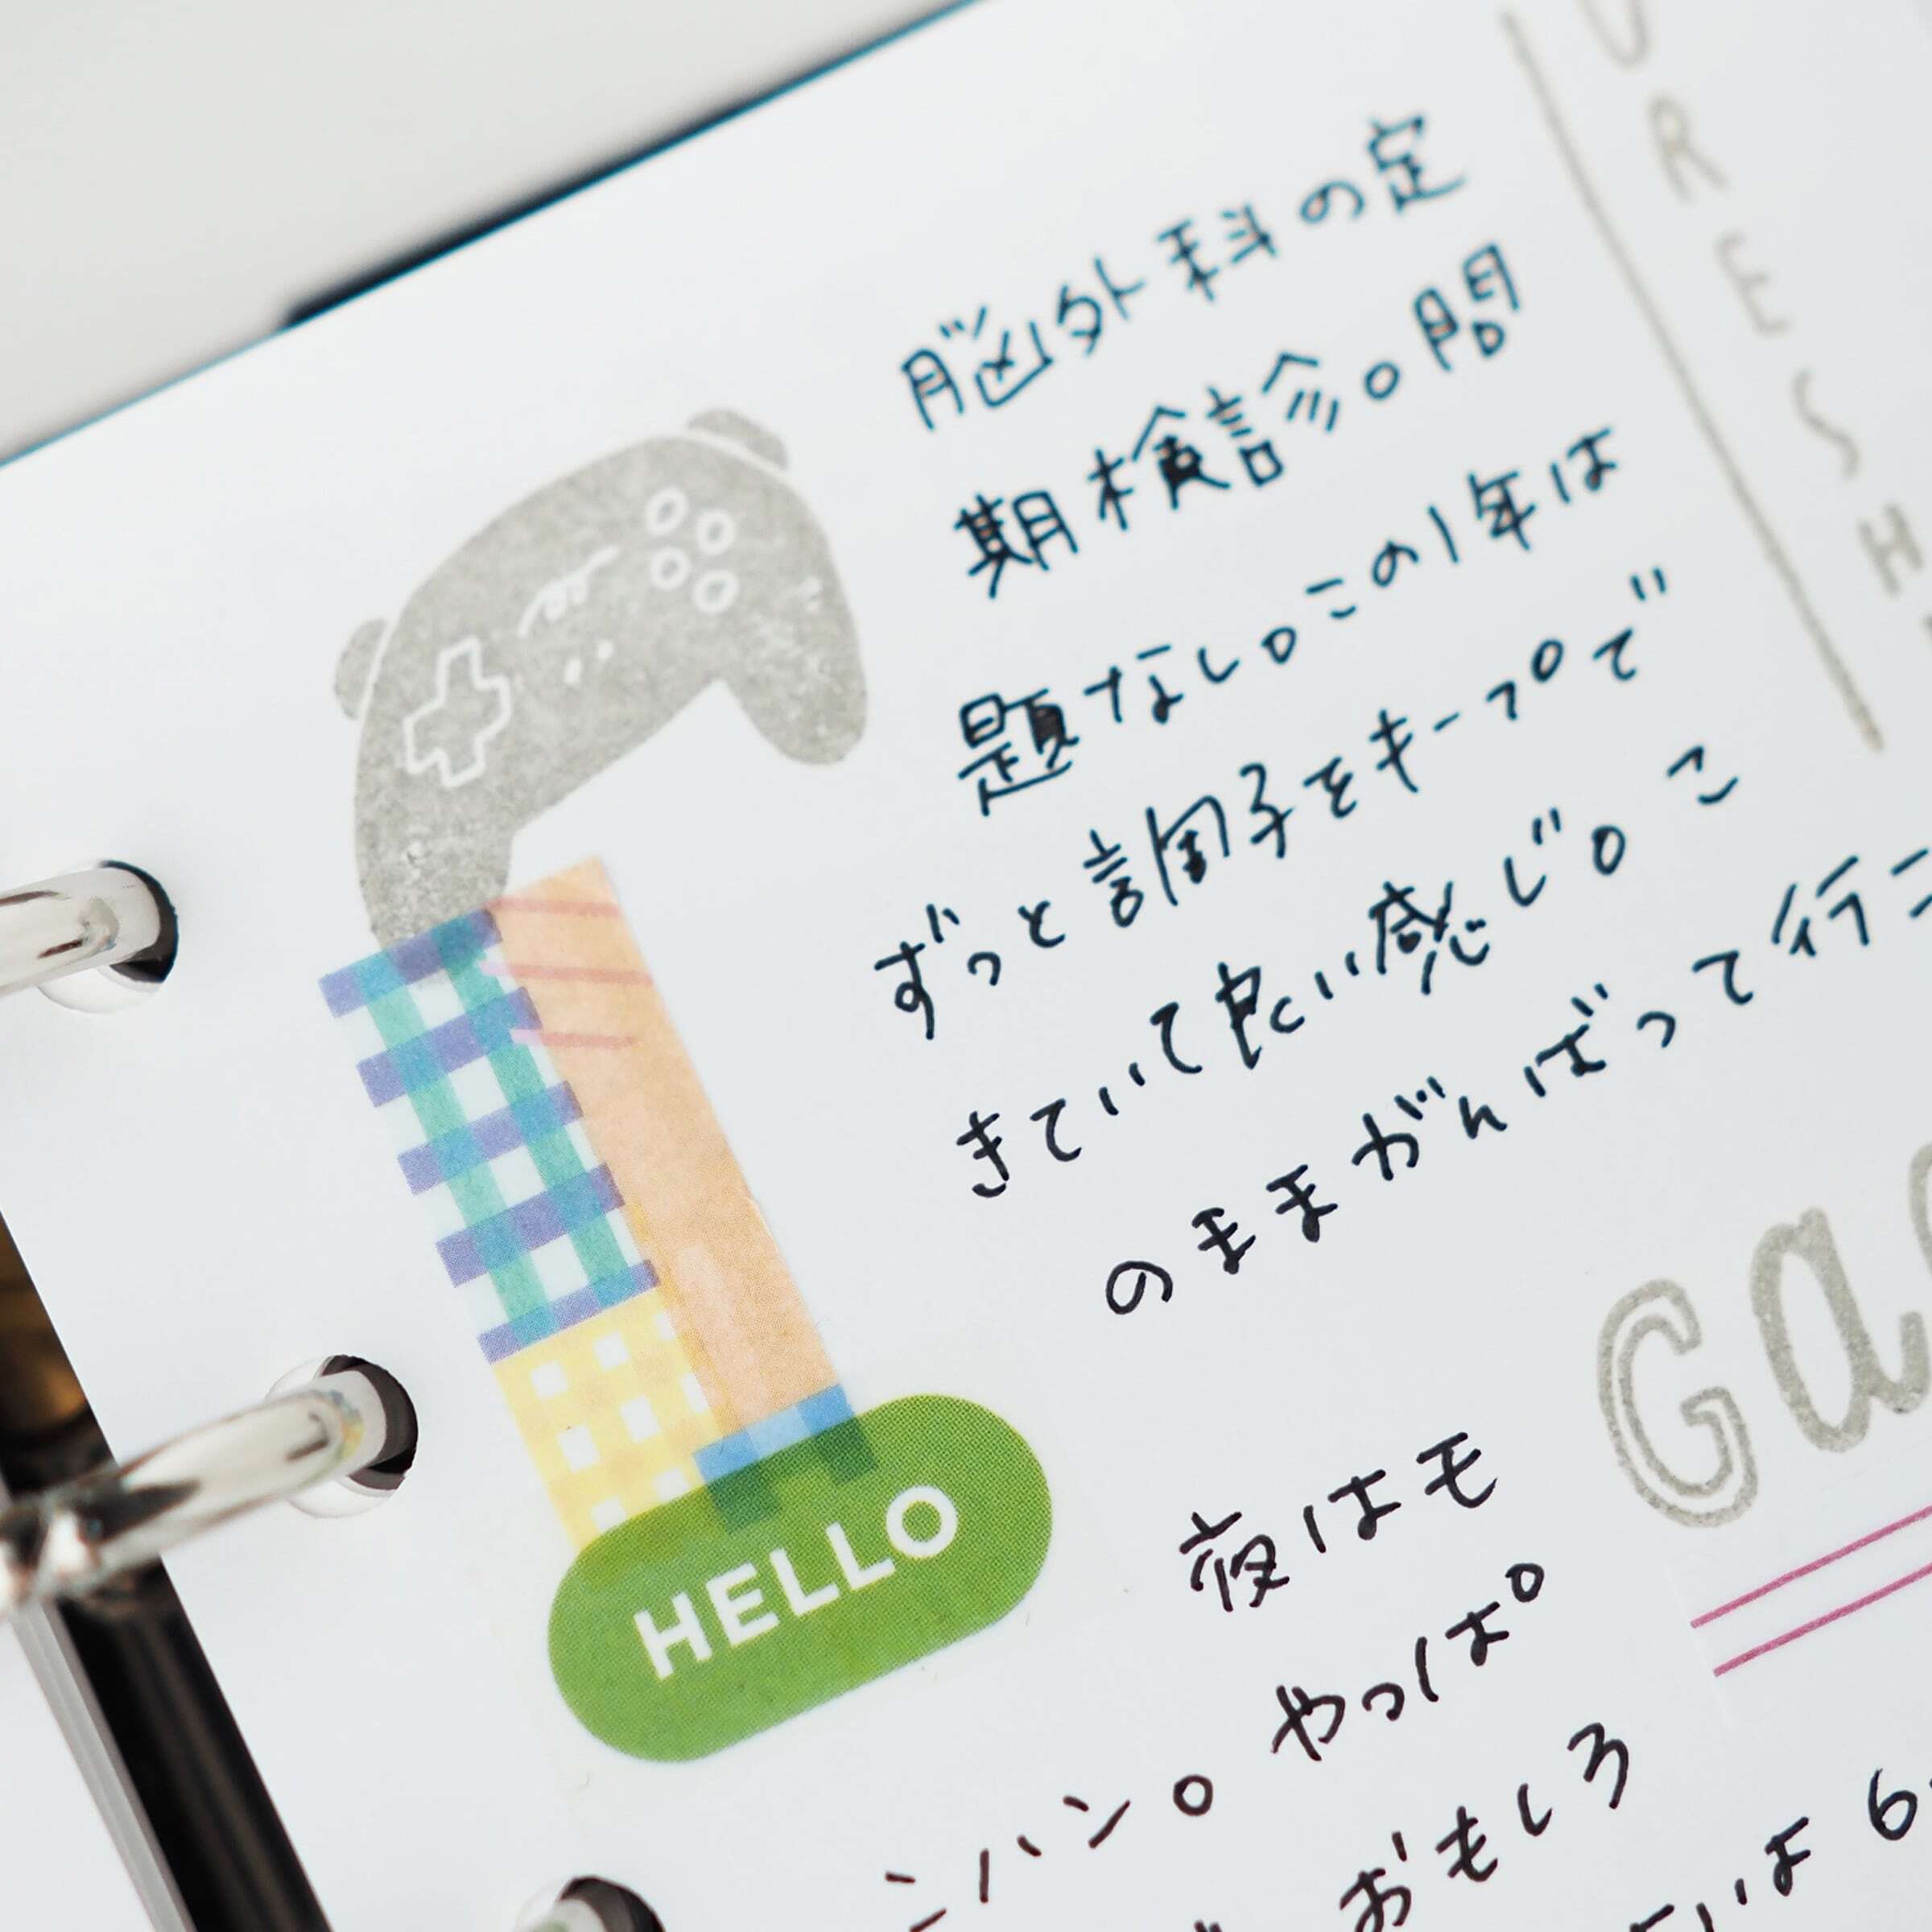 脳外科の定
期検診。問
題なし。この1年は
ずっと調子をキープで
きていて良い感じ。こ
のままがんばって行こ
URESH
HELLO
Ga
夜はモ
ンハン。やっぱ
おもしろ
いよ